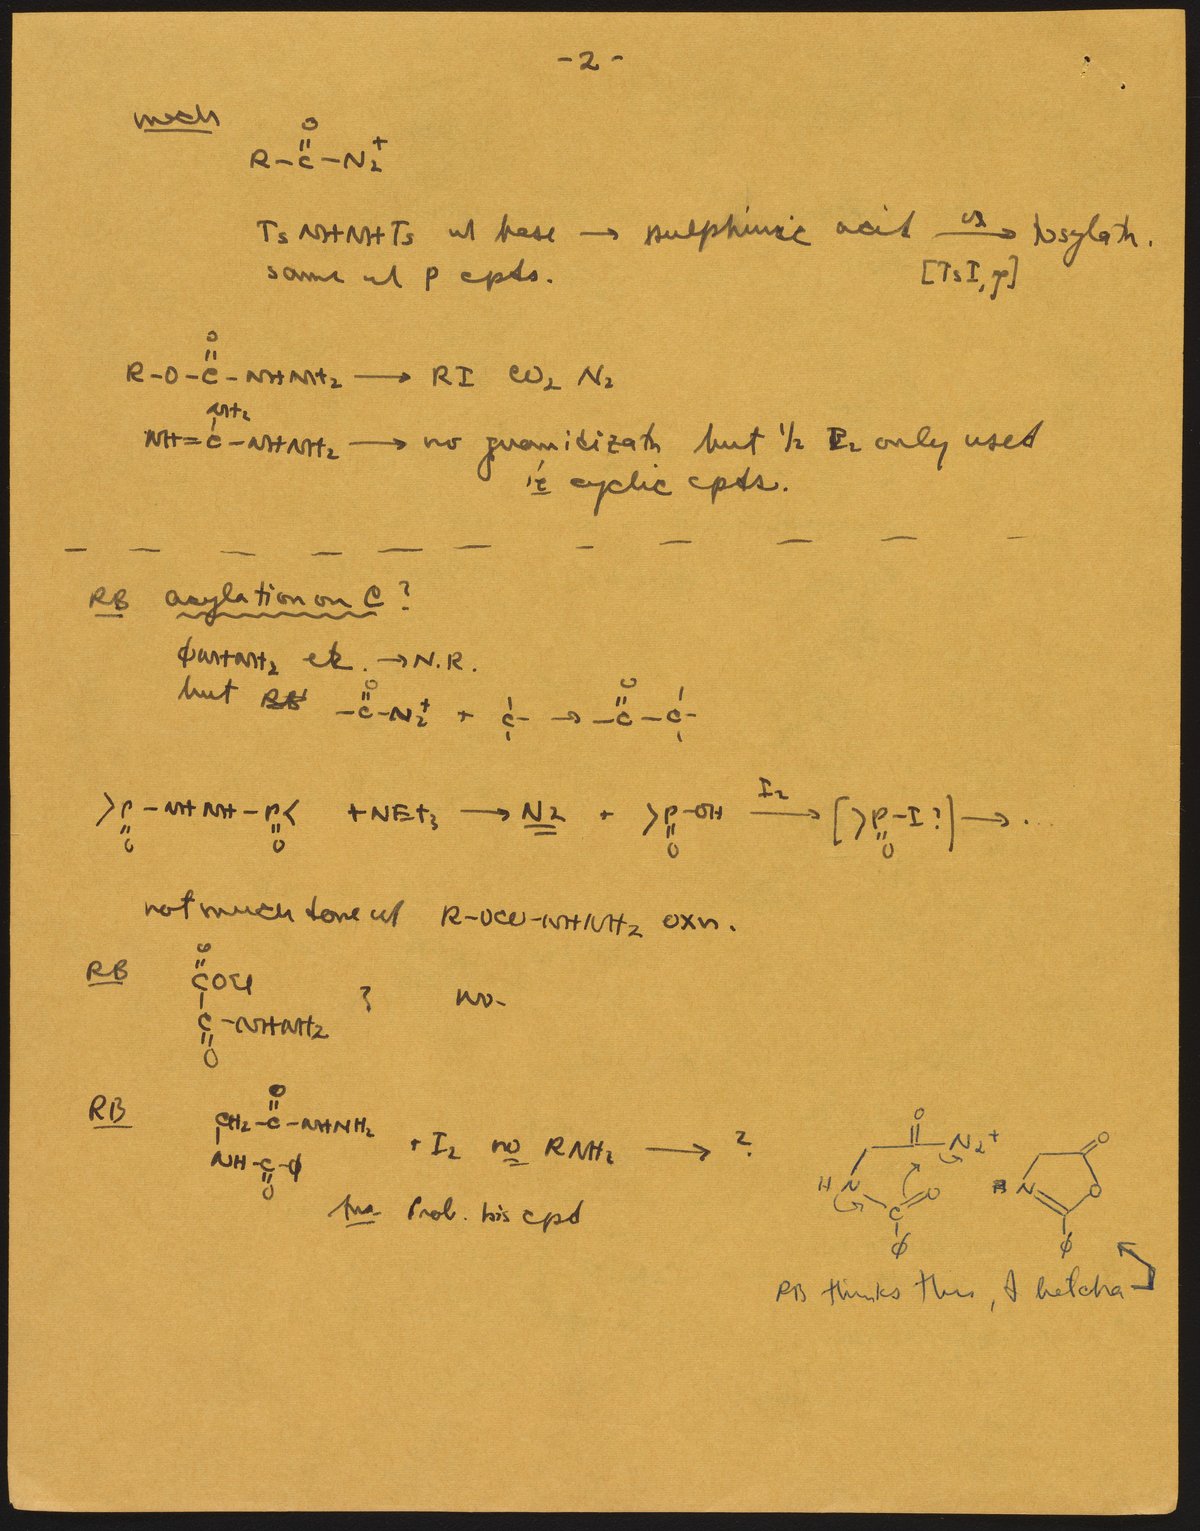 -2-
mech
O
R-C-N2+
TsNHNHTs w/ base → sulphinic acid → tosylatn.
same w/ P cpts. [TsI, py]
O
R-O-C-NHNH2 → RI CO2 N2
NH2
NH=C-NHNH2 → no guanidizatn but 1/2 I2 only used
ie cyclic cpts.
RB acylation on C?
φNHNH2 etc. → N.R.
but O O
-C-N2+ + C- → -C-C-
>P-NHNH-P< + NEt3 → N2 + >P-OH I2 → [>P-I?] → ...
O O O O
not much done w/ R-OCO-NHNH2 oxn.
O
RB COEt
? no-
C-NHNH2
O
O
RB CH2-C-NHNH2
+ I2 no RNH2 → ?
NH-C-φ
O
Ans Prob. bis cpd
O O
N2+
H N C O N O
φ φ
RB thinks this, I betcha